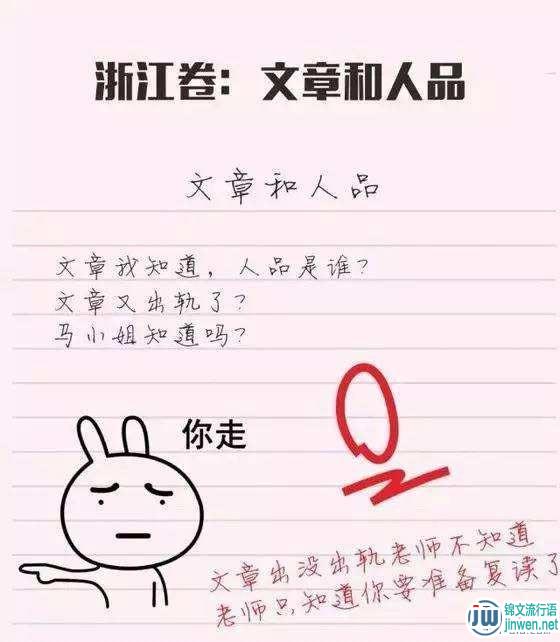 浙江卷：文章和人品
文章和人品
文章我知道，人品是谁？
文章又出轨了？
马小姐知道吗？
你走
0
文章出没出轨老师不知道
老师只知道你要准备复读了
JW 锦文流行语
jinwen.net